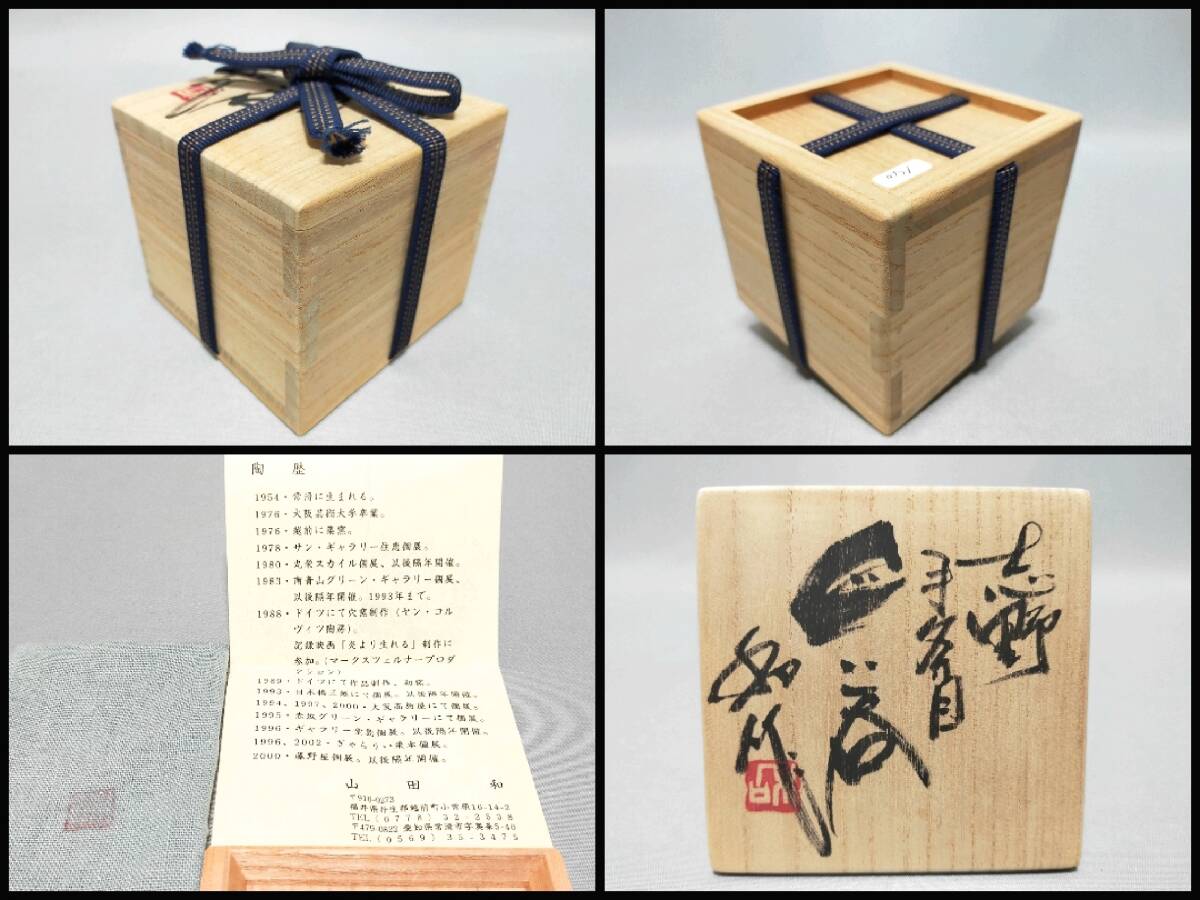 陶 歴
1954・常滑に生まれる。
1976・大阪芸術大学卒業。
1976・越前に築窯。
1978・サン・ギャラリー住恵個展。
1980・丸栄スカイル個展、以後隔年開催。
1983・南青山グリーン・ギャラリー個展、
以後隔年開催。1993年まで。
1988・ドイツにて穴窯制作(ヤン・コル
ヴィツ陶房)。
記録映画「炎より生れる」制作に
参加。(マークスツェルナープロダ
クション)
1989・ドイツにて作品制作、初窯。
1993・日本橋三越にて個展。以後隔年開催。
1994、1997、2000・大阪高島屋にて個展。
1995・赤坂グリーン・ギャラリーにて個展。
1996・ギャラリー 個展。以後隔年開催。
1996、2002・ぎゃらりい 個展。
2000・藤野屋個展。以後隔年開催。
山 田 和
〒916-0273
福井県丹生郡越前町小曽原16-14-2
TEL(0778)32-2538
〒479-0822 愛知県常滑市字奥栄5-40
TEL(0569)35-3475
志野
和作